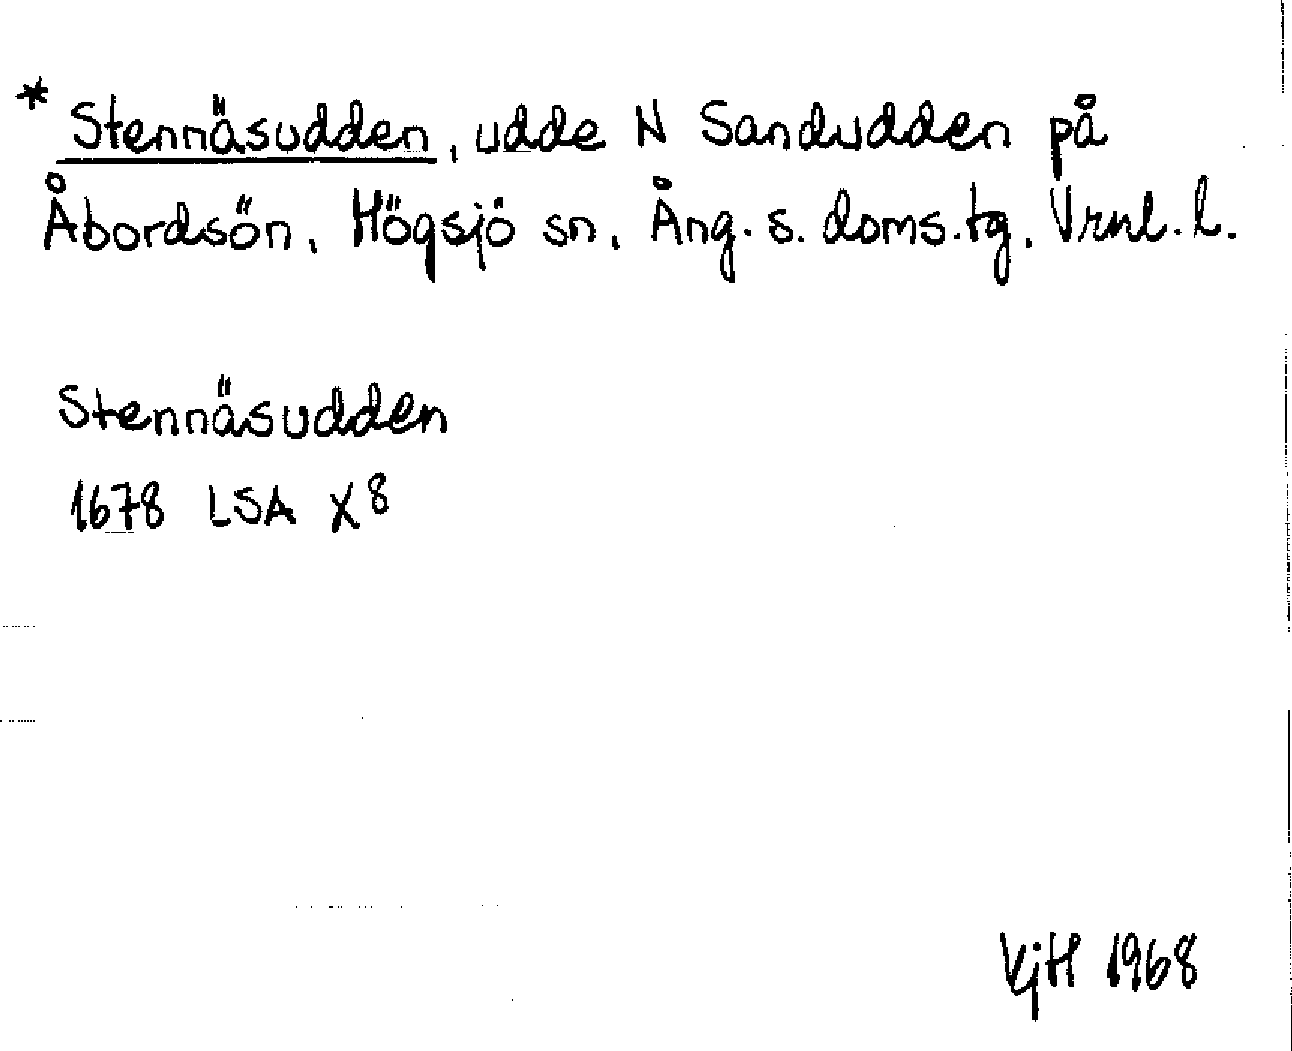 * Stennäsudden, udde N Sandudden på
Åbordsön, Högsjö sn, Ång. s. doms.tg, Vrnl. l.
Stennäsudden
1678 LSA X8
VjH 1968